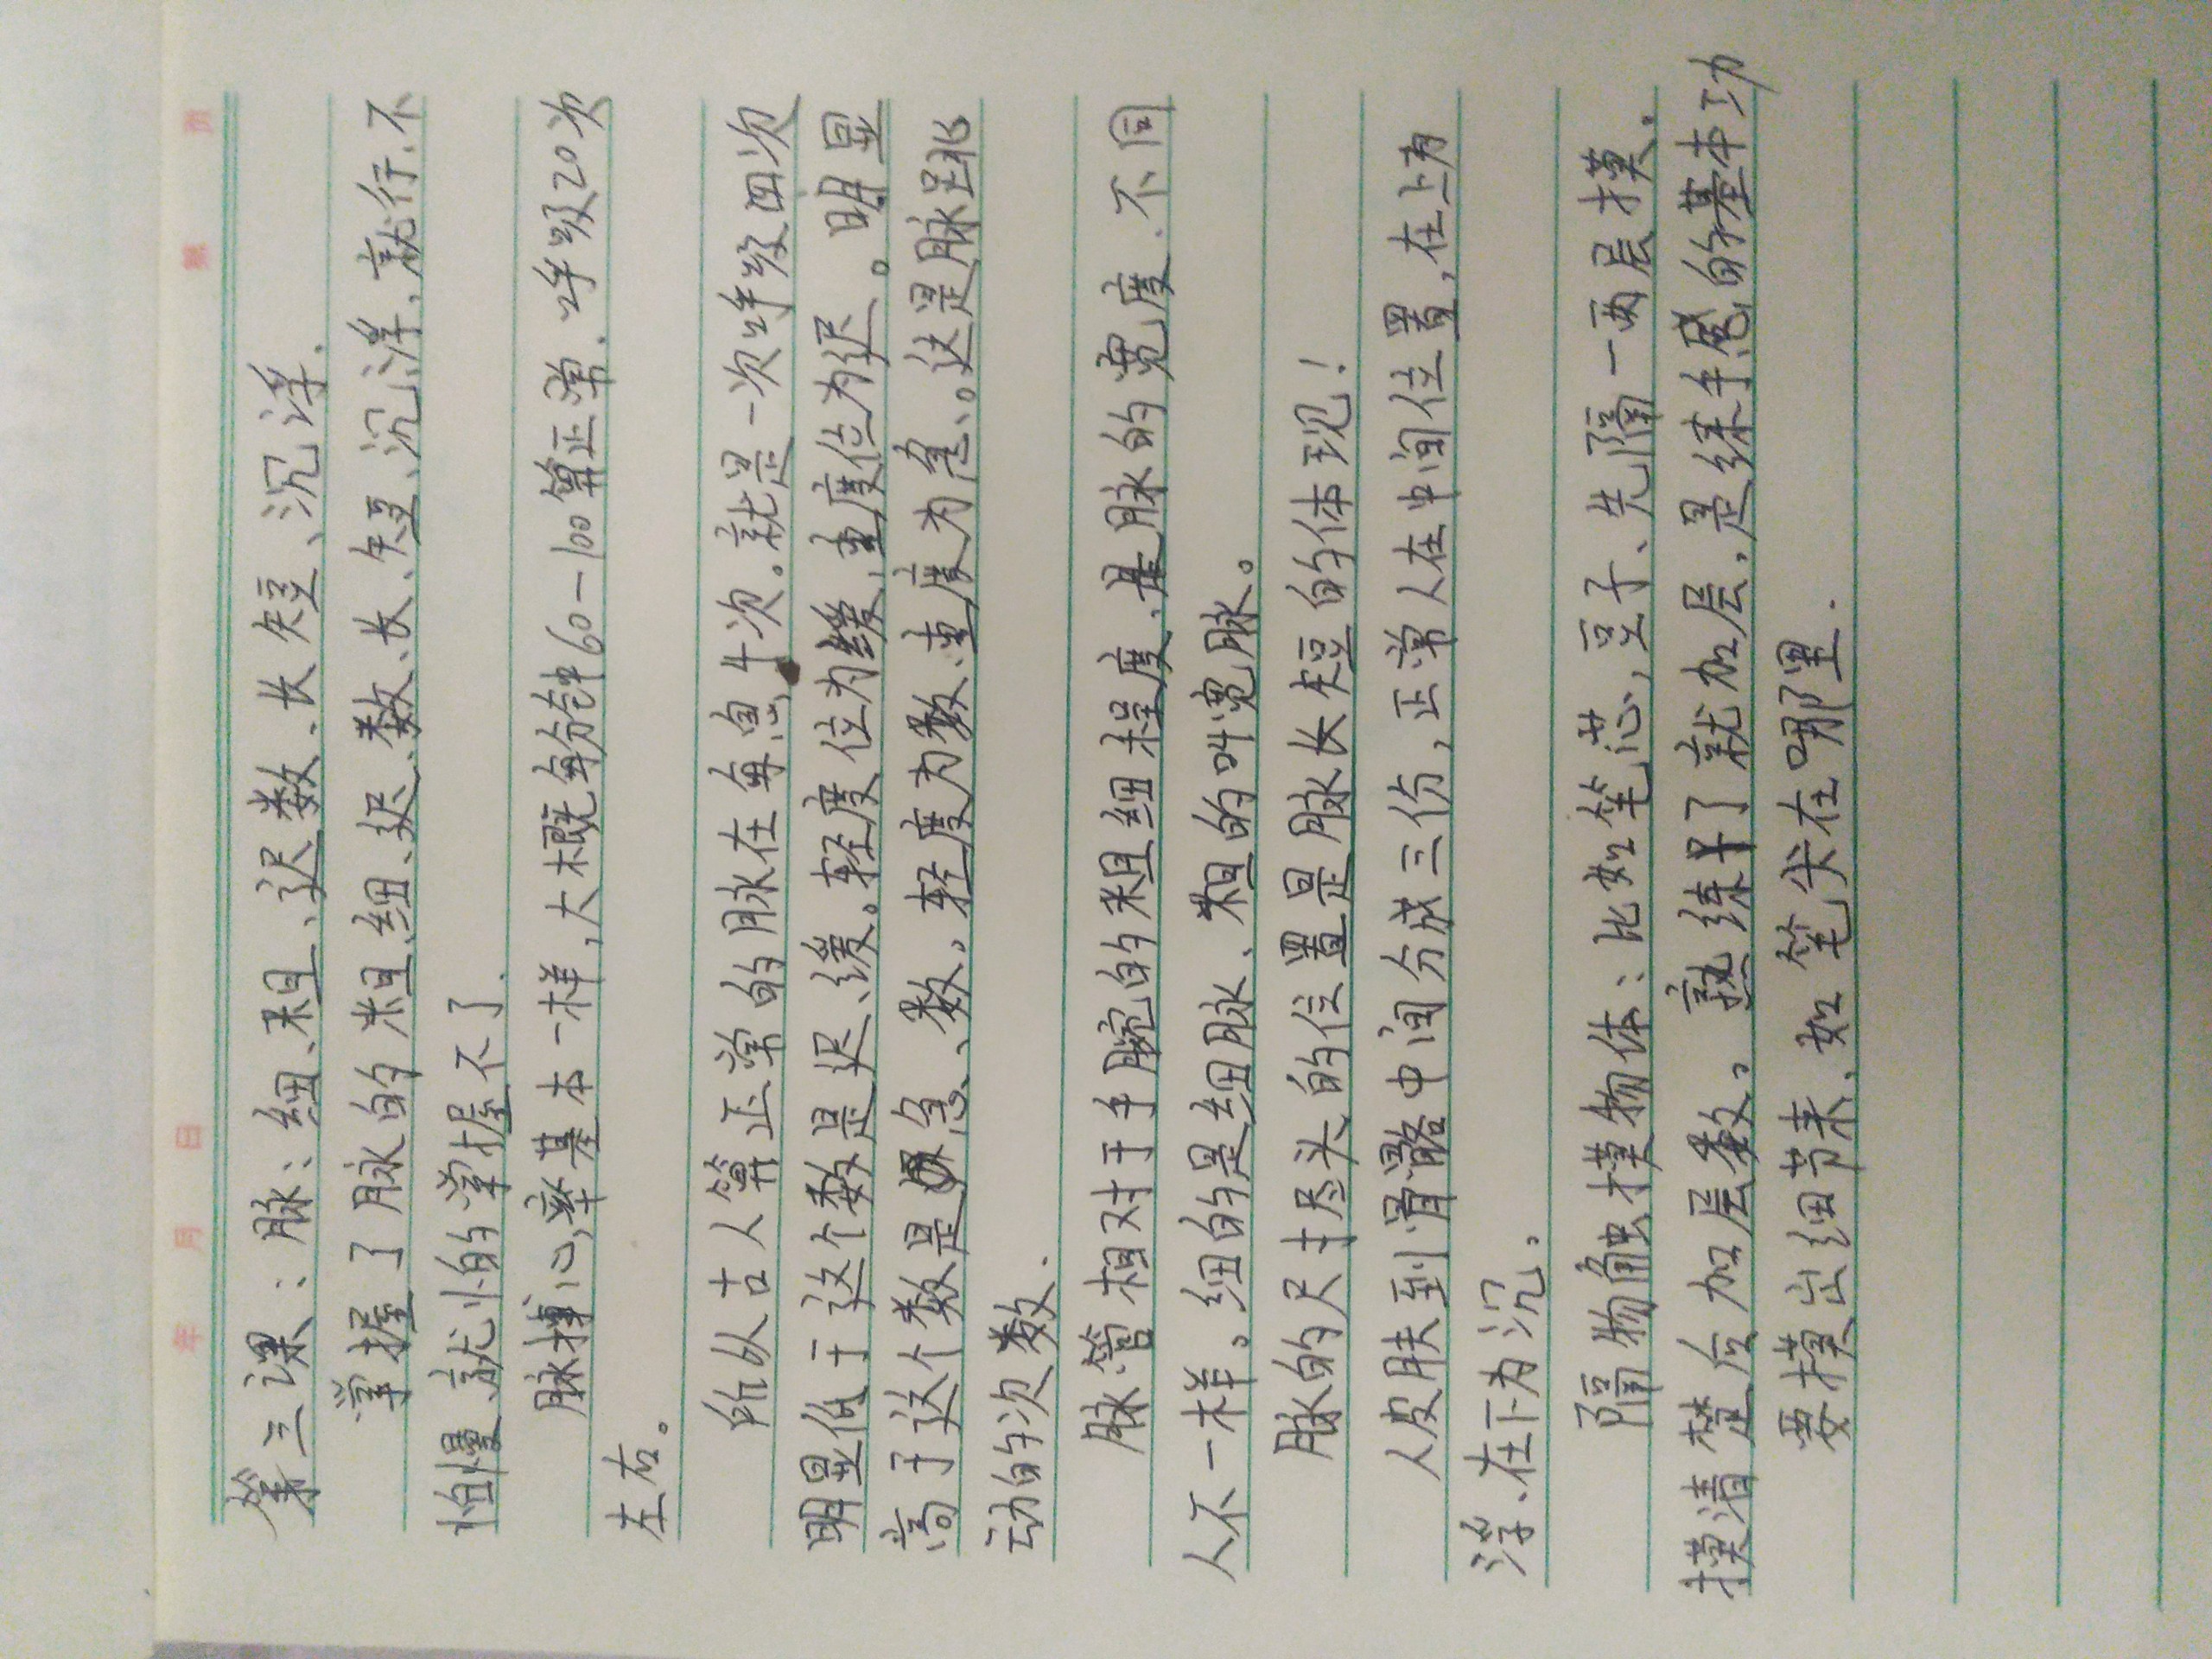 年 月 日 第 页
第三课：脉：细、粗、迟、数、长、短、沉、浮.
掌握了脉的粗、细、迟、数、长、短、沉、浮、就行.不
怕慢、就怕的掌握不了.
脉搏心率基本一样,大概每分钟60-100算正常.呼吸20次
左右。
所以古人算正常的脉在每息4次。就是一次呼吸四次
明显低于这个数是迟、缓。轻度位为缓、重度位为迟。明显
高于这个数是急、数，轻度为数、重度为急、。这是脉跳
动的次数.
脉管相对于手腕的粗细程度、是脉的宽度.不同
人不一样。细的是细脉、粗的叫宽脉。
脉的尺寸尽头的位置是脉长短的体现！
人皮肤到骨骼中间分成三份,正常人在中间位置,在上为
浮、在下为沉。
隔物触摸物体：比如笔芯,豆子、先隔一两层摸.
摸清楚后加层数。熟练了就加层,是练手感的基本功
要摸出细节来、如笔尖在哪里.